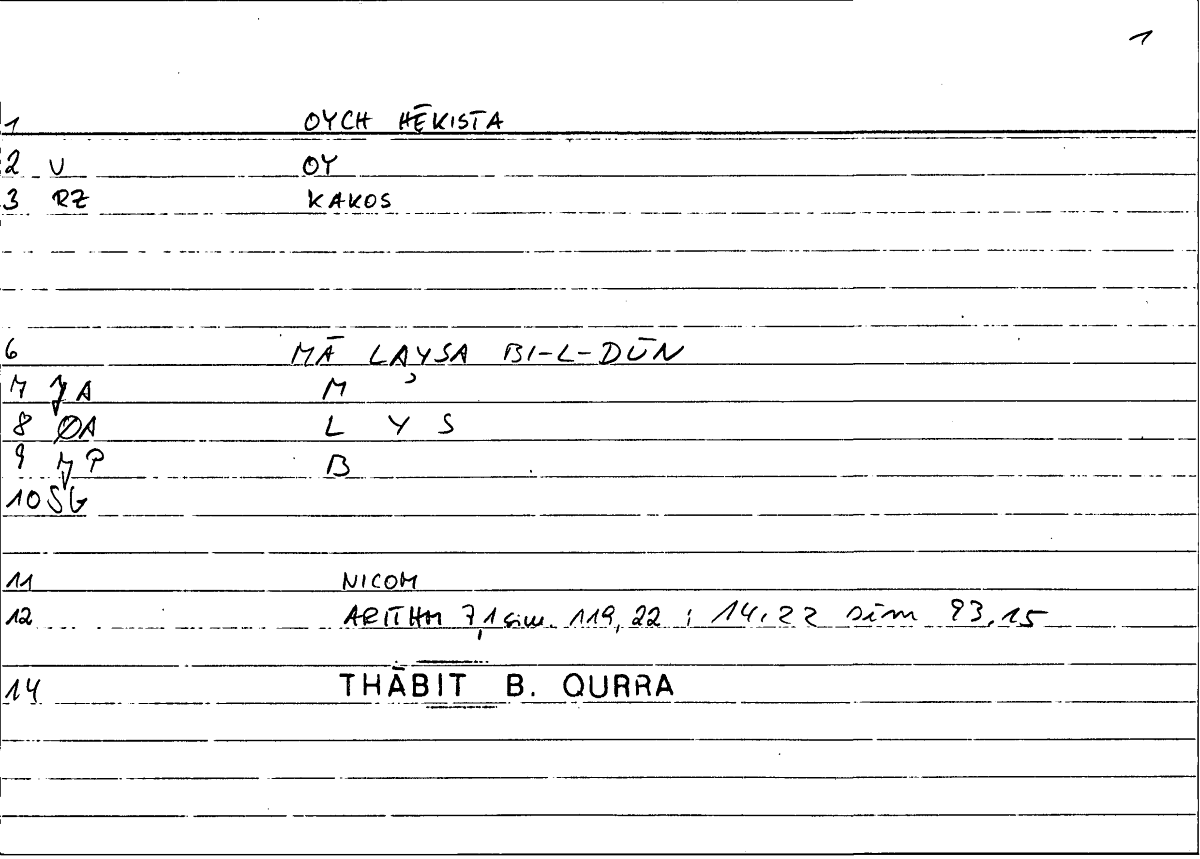 1
1 OYCH HĒKISTA
2 V OY
3 RZ KAKOS
6 MĀ LAYSA BI-L-DŪN
7 A M
8 ØA L Y S
9 P B
10 SG
11 NICOM
12 ARITHM 7,1 sim. 119,22 ; 14,22 sim 93,15
14 THĀBIT B. QURRA